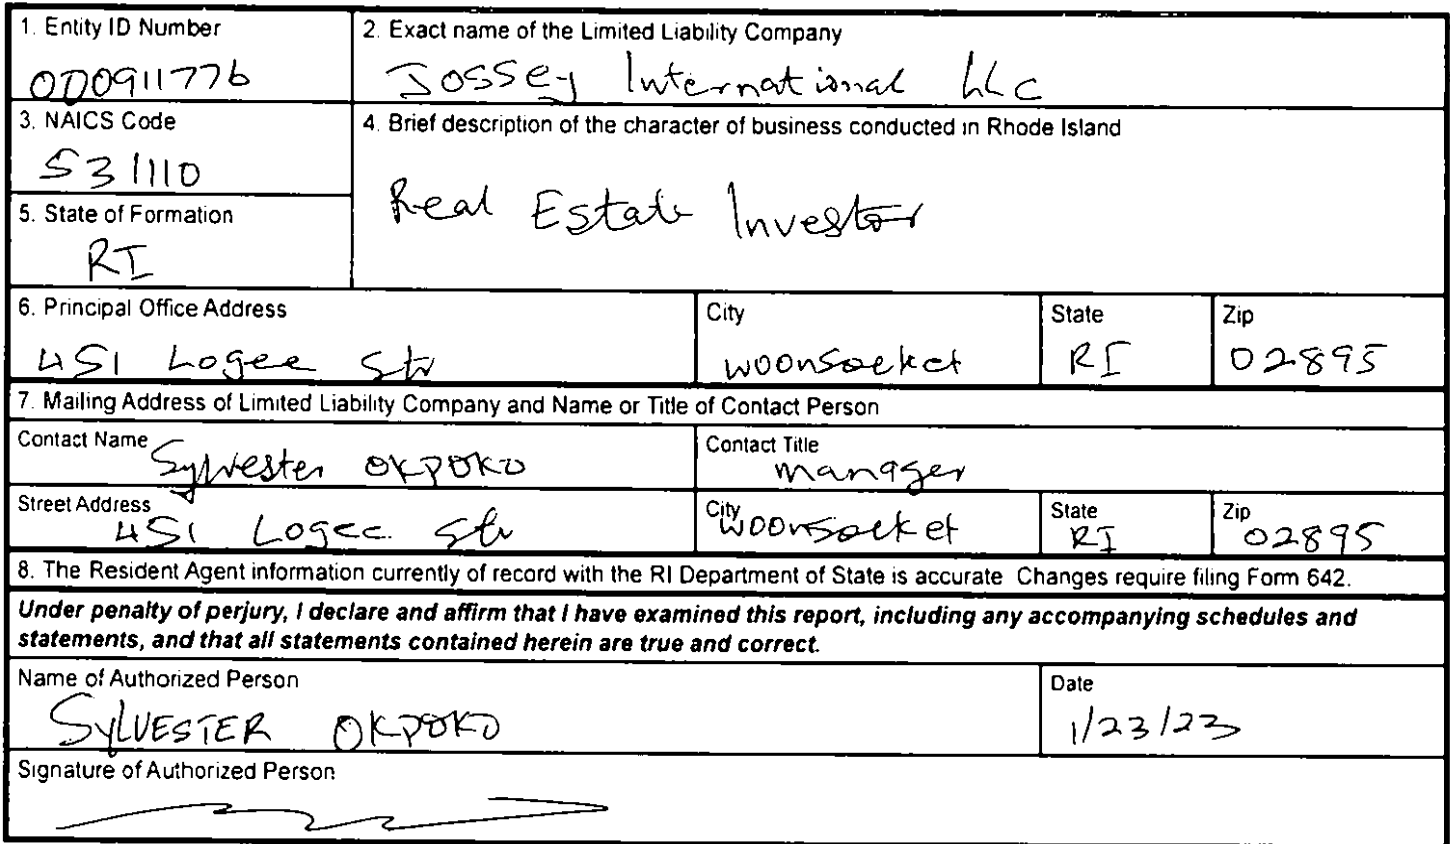 1. Entity ID Number
000911776
2. Exact name of the Limited Liability Company
Jossey International LLC
3. NAICS Code
531110
4. Brief description of the character of business conducted in Rhode Island
Real Estate Investor
5. State of Formation
RI
6. Principal Office Address
451 Logee Str
City
Woonsocket
State
RI
Zip
02895
7. Mailing Address of Limited Liability Company and Name or Title of Contact Person
Contact Name
Sylvester OKPOKO
Contact Title
manager
Street Address
451 Logee Str
City
Woonsocket
State
RI
Zip
02895
8. The Resident Agent information currently of record with the RI Department of State is accurate Changes require filing Form 642.
Under penalty of perjury, I declare and affirm that I have examined this report, including any accompanying schedules and
statements, and that all statements contained herein are true and correct.
Name of Authorized Person
SYLVESTER OKPOKO
Date
1/23/23
Signature of Authorized Person